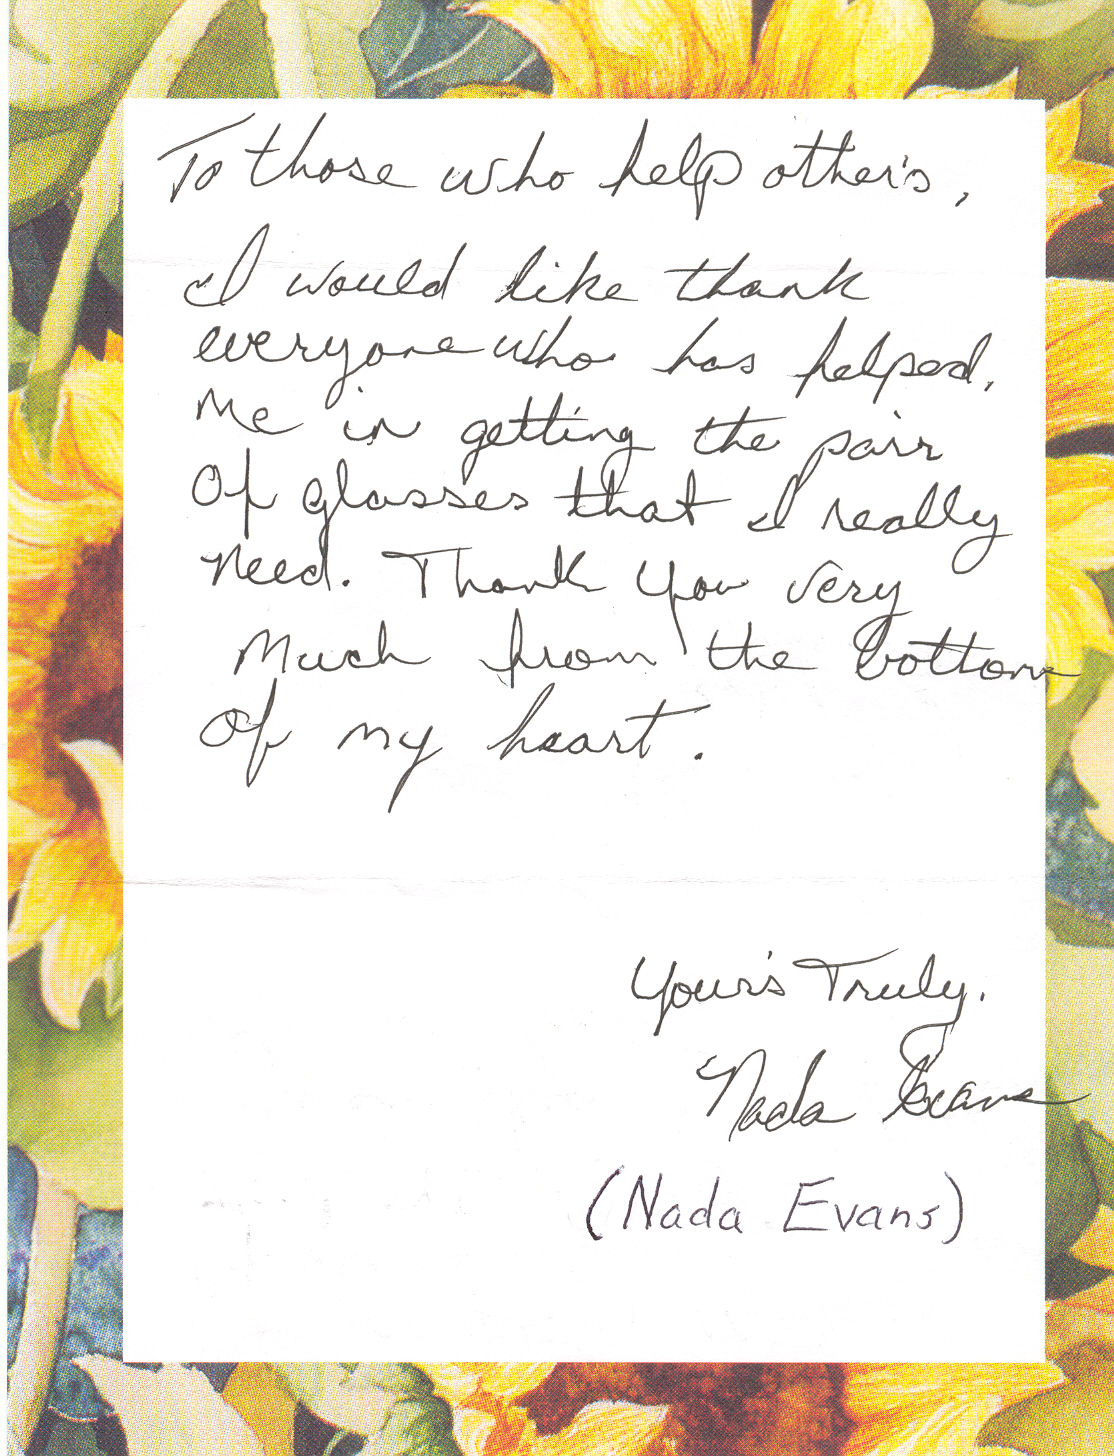 To those who help other's,
I would like thank
everyone who has helped.
Me in getting the pair
Of glasses that I really
Need. Thank You very
Much from the bottom
Of my heart.
Your's Truly.
Nada Evans
(Nada Evans)